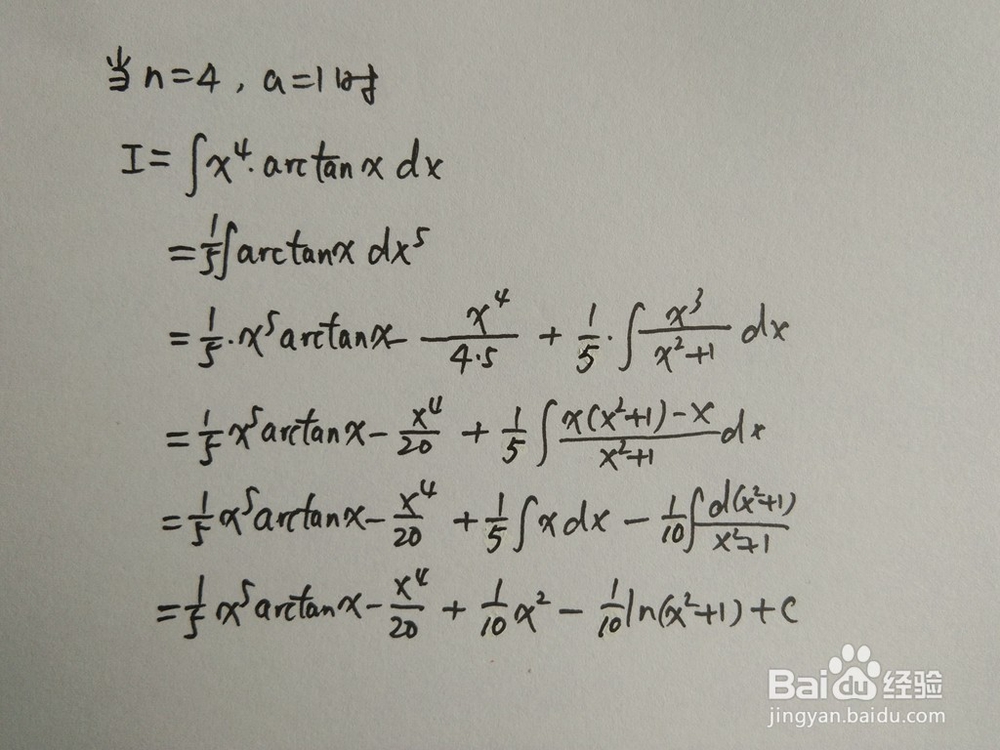 当 n=4, a=1时
I = ∫x⁴·arctanx dx
= 1/5∫arctanx dx⁵
= 1/5·x⁵arctanx - x⁴/(4·5) + 1/5·∫x³/(x²+1) dx
= 1/5 x⁵arctanx - x⁴/20 + 1/5∫(x(x²+1)-x)/(x²+1) dx
= 1/5 x⁵arctanx - x⁴/20 + 1/5∫x dx - 1/10∫d(x²+1)/(x²+1)
= 1/5 x⁵arctanx - x⁴/20 + 1/10 x² - 1/10 ln(x²+1) + C
Baidu经验
jingyan.baidu.com